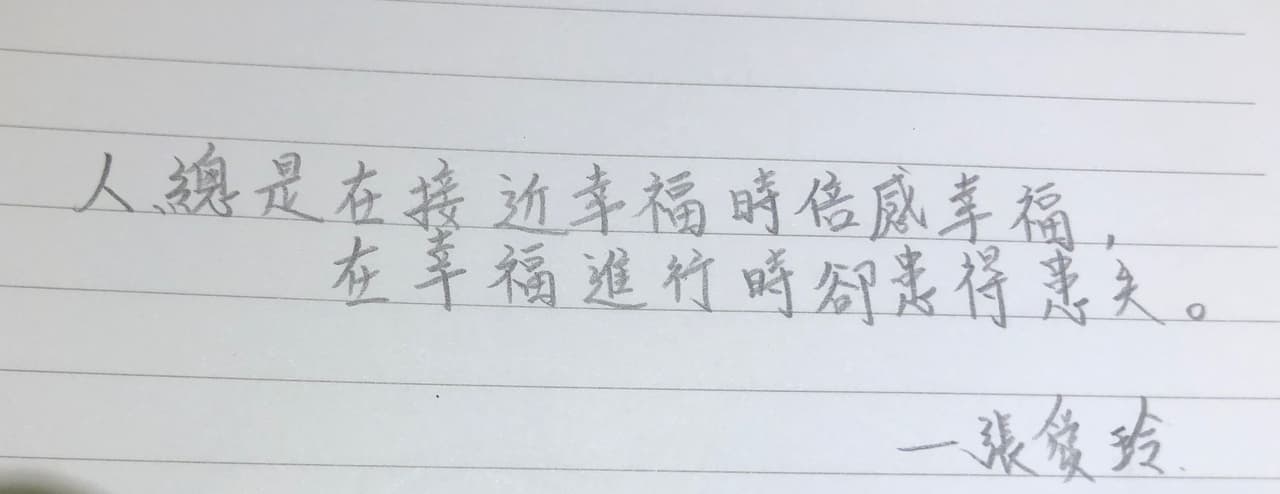 人總是在接近幸福時倍感幸福，
在幸福進行時卻患得患失。
—張愛玲